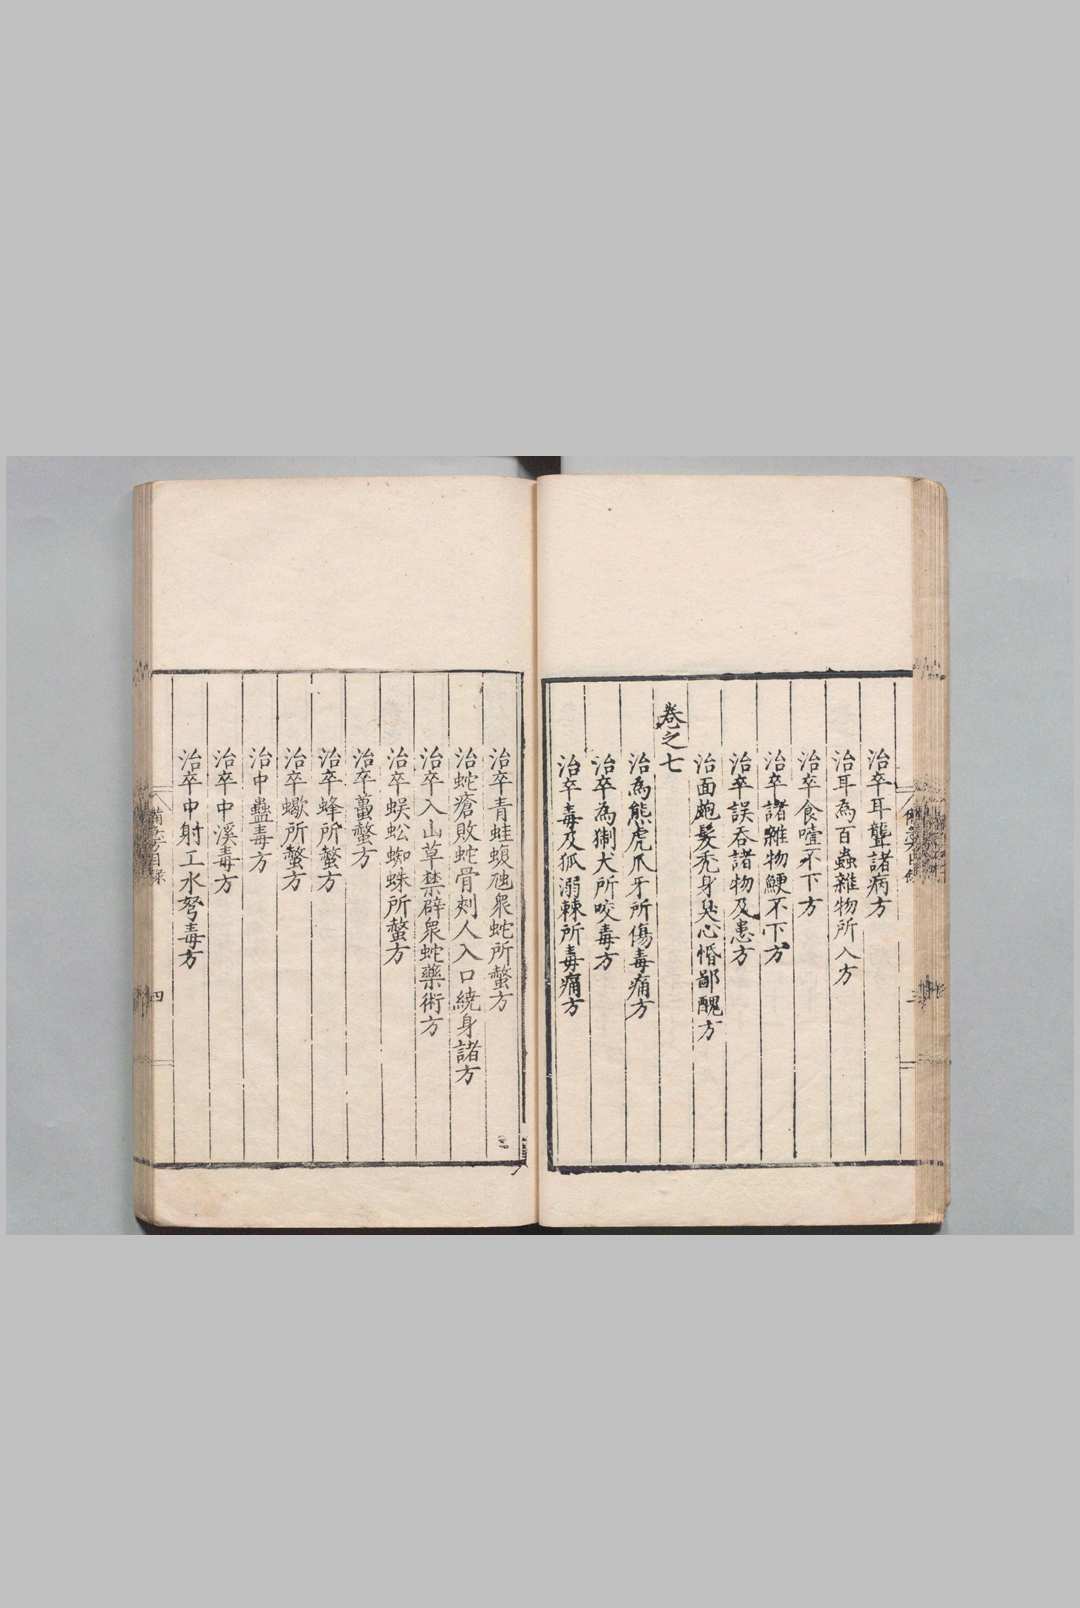 治卒耳聾諸病方
治耳為百蟲雜物所入方
治卒食噎不下方
治卒諸雜物鯁不下方
治卒誤吞諸物及患方
治面皰髮禿身臭心惛鄙醜方
卷之七
治為熊虎爪牙所傷毒痛方
治卒為猘犬所咬毒方
治卒毒及狐溺棘所毒痛方
治卒青蛙蝮虺衆蛇所螫方
治蛇瘡敗蛇骨刾人入口繞身諸方
治卒入山草禁辟衆蛇藥術方
治卒蜈蚣蜘蛛所螫方
治卒蠆螫方
治卒蜂所螫方
治卒蠍所螫方
治中蠱毒方
治卒中溪毒方
治卒中射工水弩毒方
四